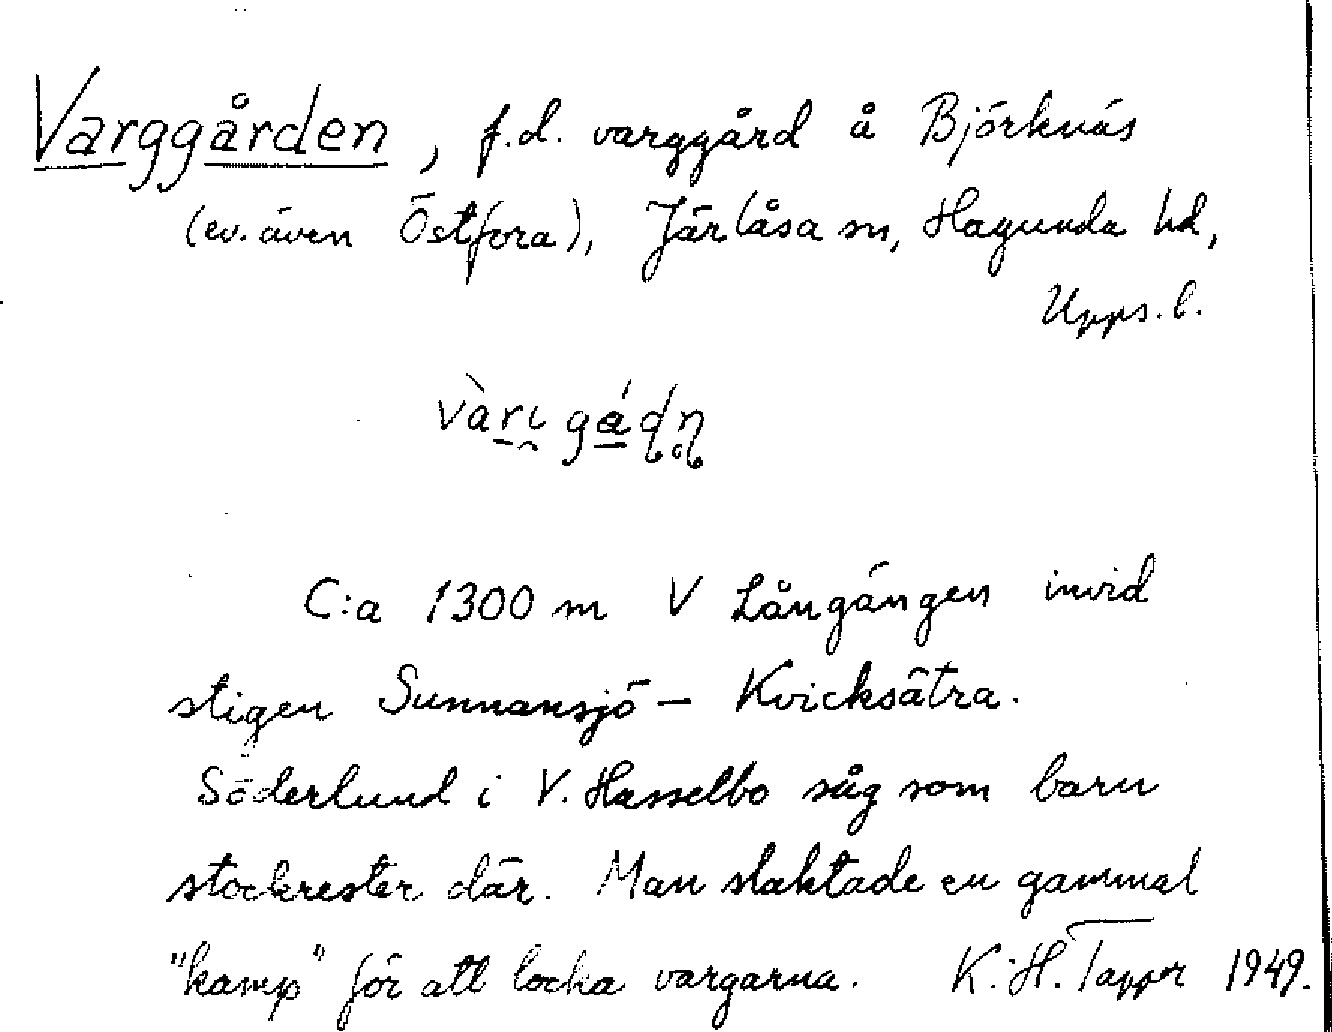 Varggården, f.d. varggård å Björknäs
(ev. även Östfora), Järlåsa sn, Hagunda hd,
Upps. l.
C:a 1300 m V Långängen invid
stigen Sunnansjö – Kvicksätra.
Söderlund i V. Hasselbo såg som barn
stockrester där. Man slaktade en gammal
"kamp" för att locka vargarna. K.-H. Tapper 1949.